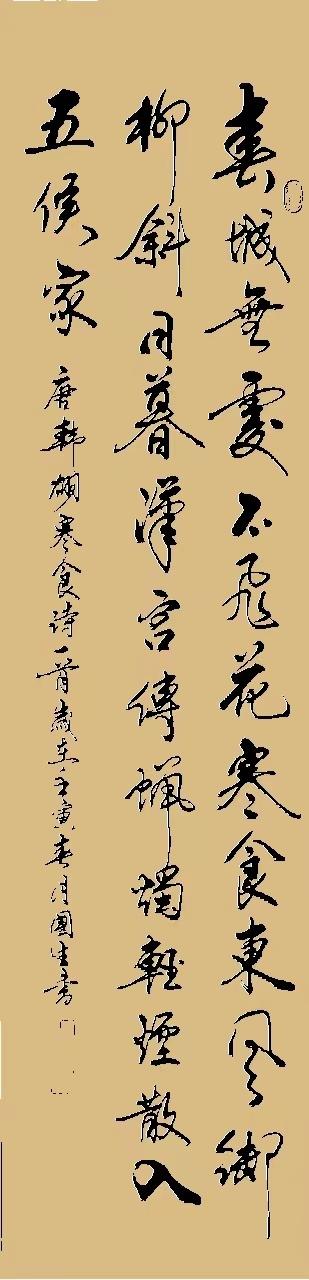 春城無處不飛花寒食東風御
柳斜日暮漢宮傳蠟燭輕煙散入
五侯家
唐韓翃寒食詩一首歲在壬寅春月國生書